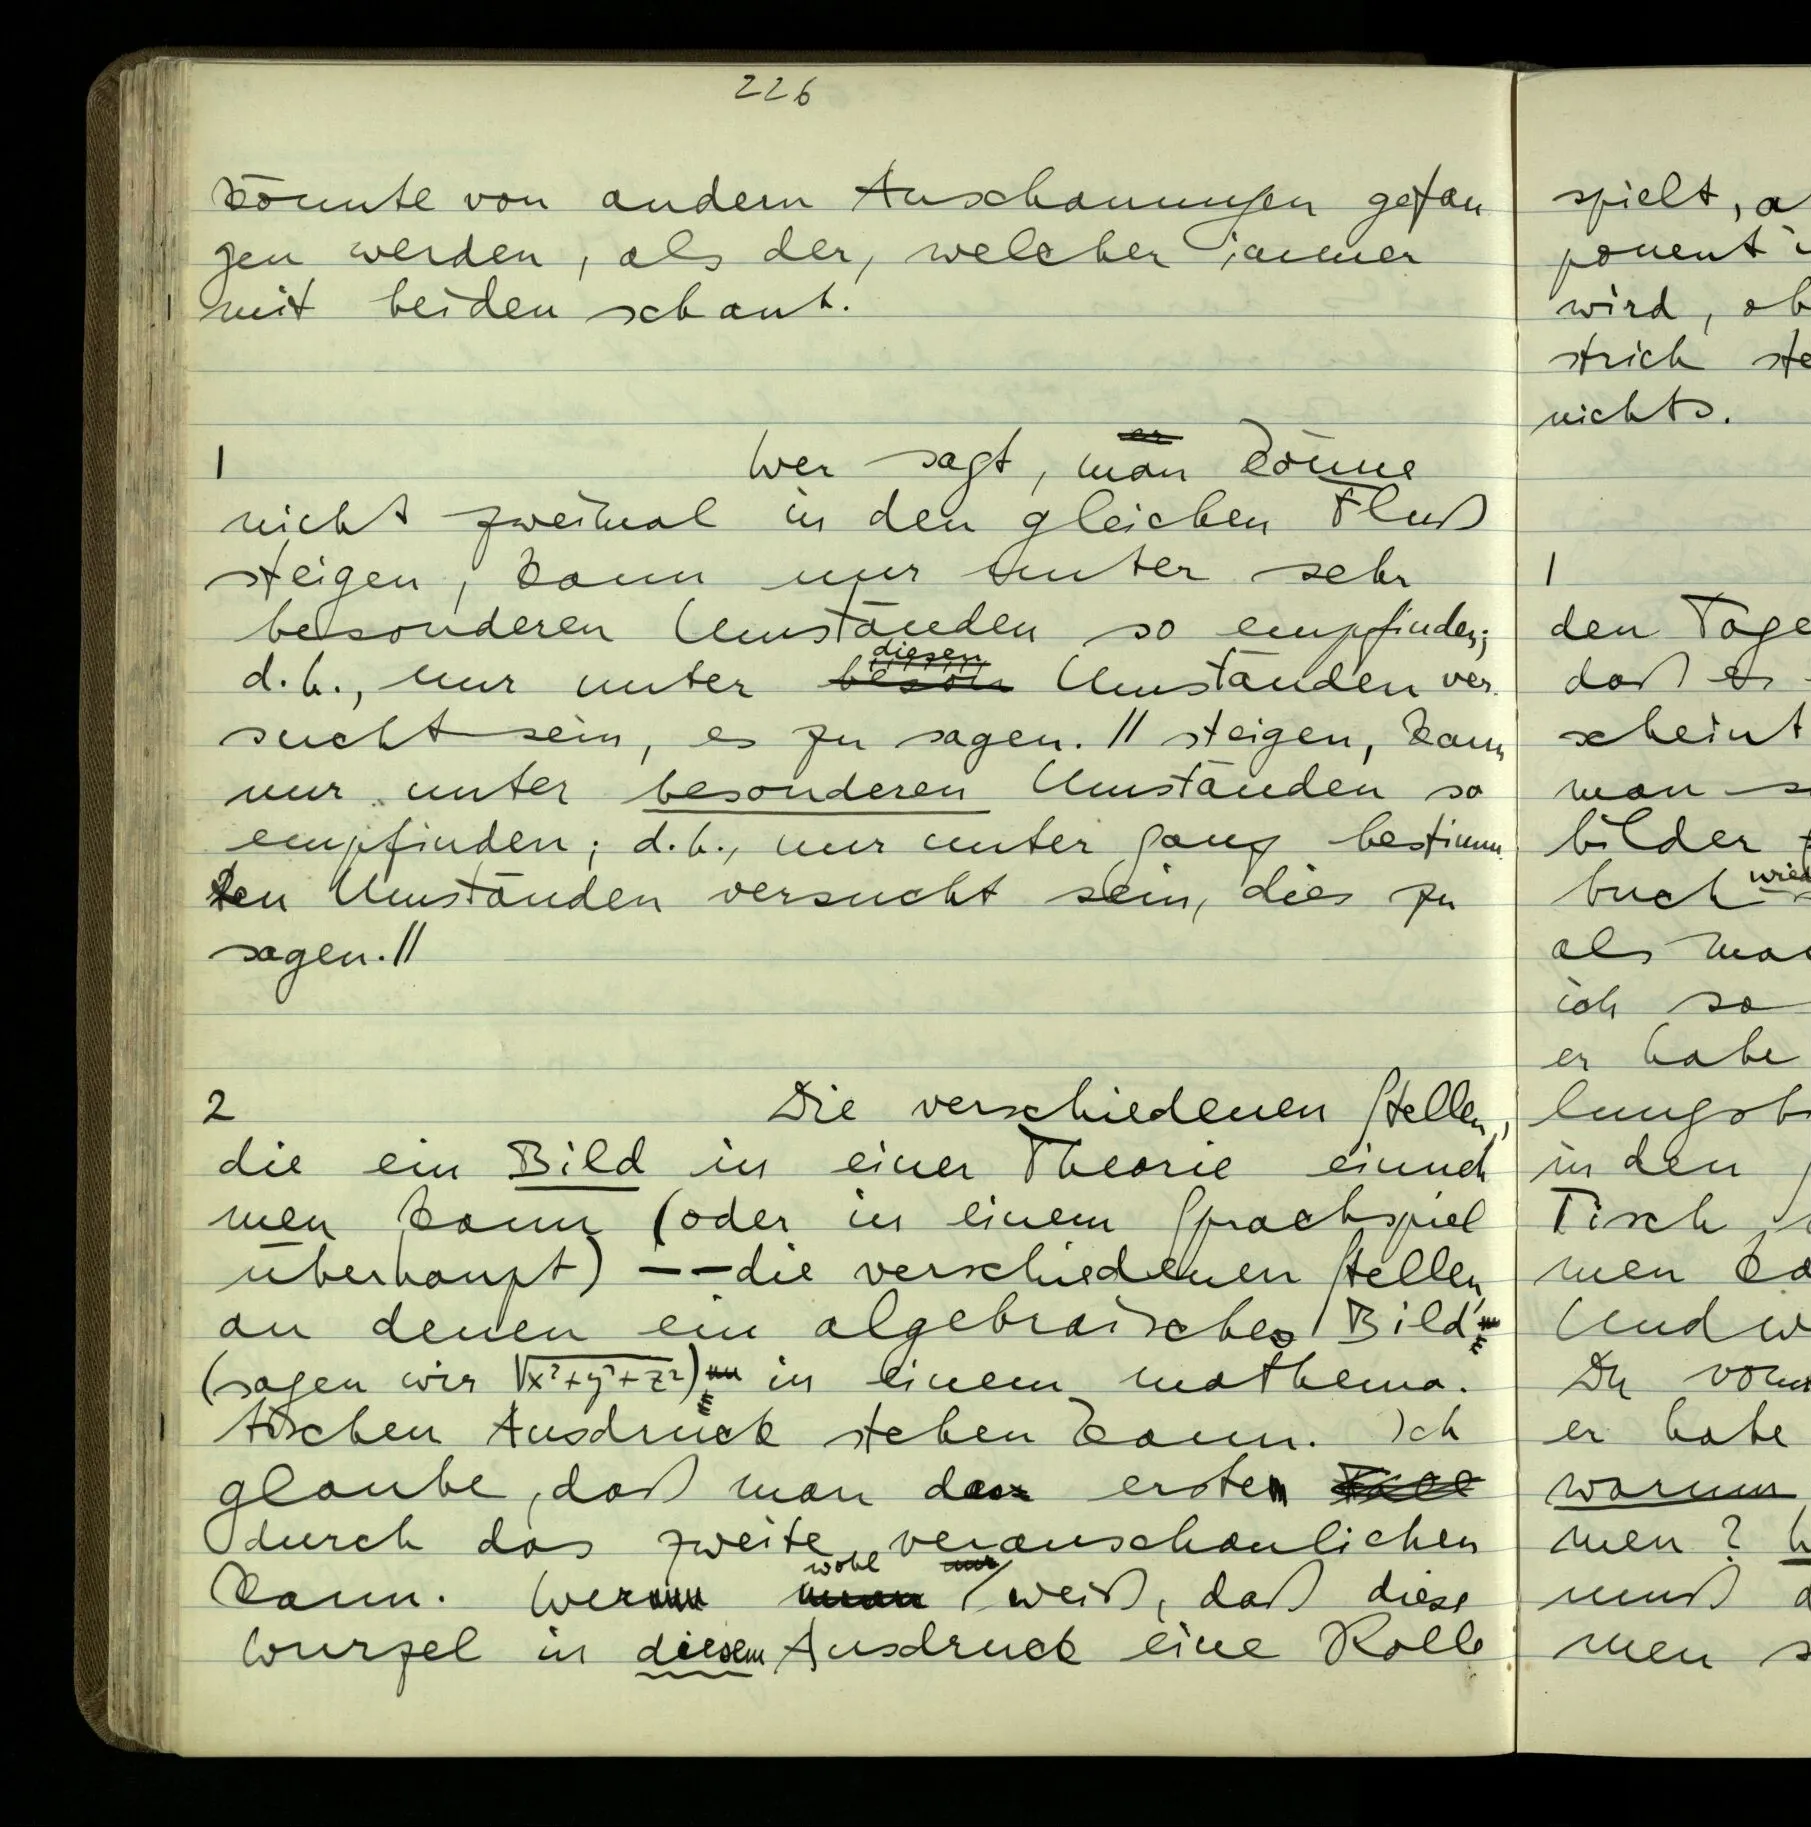 226
könnte von andern Anschauungen gefan
gen werden, als der, welcher immer
mit beiden schaut.
1
er
Wer sagt, man könne
nicht zweimal in den gleichen Fluß
steigen, kann nur unter sehr
besonderen Umständen so empfinden;
diesen
d.h., nur unter beson Umständen ver-
sucht sein, es zu sagen. // steigen, kann
nur unter besonderen Umständen so
empfinden; d.h., nur unter ganz bestimm-
ten Umständen versucht sein, dies zu
sagen. //
2
Die verschiedenen Stellen,
die ein Bild in einer Theorie einneh
men kann (oder in einem Sprachspiel
überhaupt) –– die verschiedenen Stellen,
an denen ein algebraisches Bild
(sagen wir √x²+y²+z²) in einem mathema-
tischen Ausdruck stehen kann. Ich
glaube, daß man das ersten
durch das zweite veranschaulichen
wohl nur
kann. Wer man weiß, daß diese
Wurzel in diesem Ausdruck eine Rolle
spielt, a
ponent i
wird, ob
strich ste
nichts.
1
den Tage
daß es
scheint
man s
bilder
wied
buch
als man
ich so
er habe
lungsb
in den
Tisch
men ka
Und w
Du
er habe
warum
men?
muß
men s